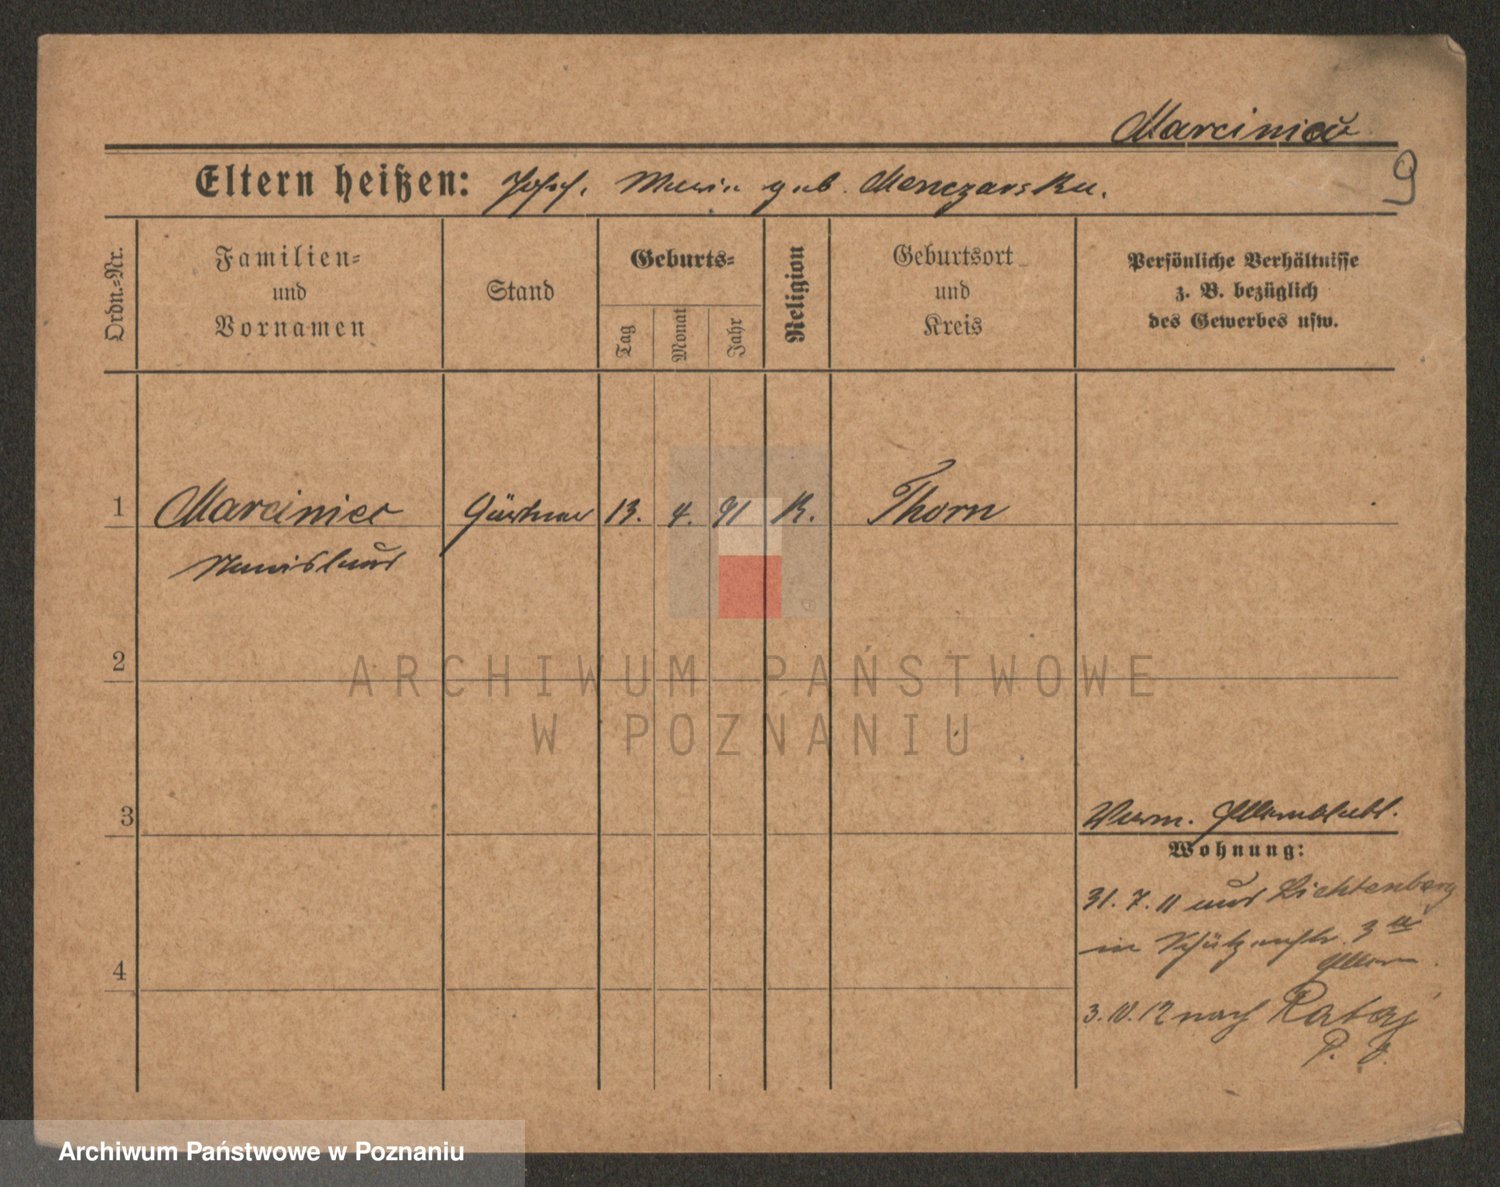 Marciniec
9
Eltern heißen: Josef, Maria geb. Menczarska.
Ordn.-Nr.
Familien-
und
Vornamen
Stand
Geburts-
Tag
Monat
Jahr
Religion
Geburtsort
und
Kreis
Persönliche Verhältnisse
z. B. bezüglich
des Gewerbes usw.
1 Marciniec Gärtner 13. 4. 91 K. Thorn
Stanislaus
2
ARCHIWUM PAŃSTWOWE
W POZNANIU
3
Wohnung:
31. 7. 11 aus Lichtenberg
in Schützenstr. 3
4
3. 10. 12 nach Rataj
Archiwum Państwowe w Poznaniu